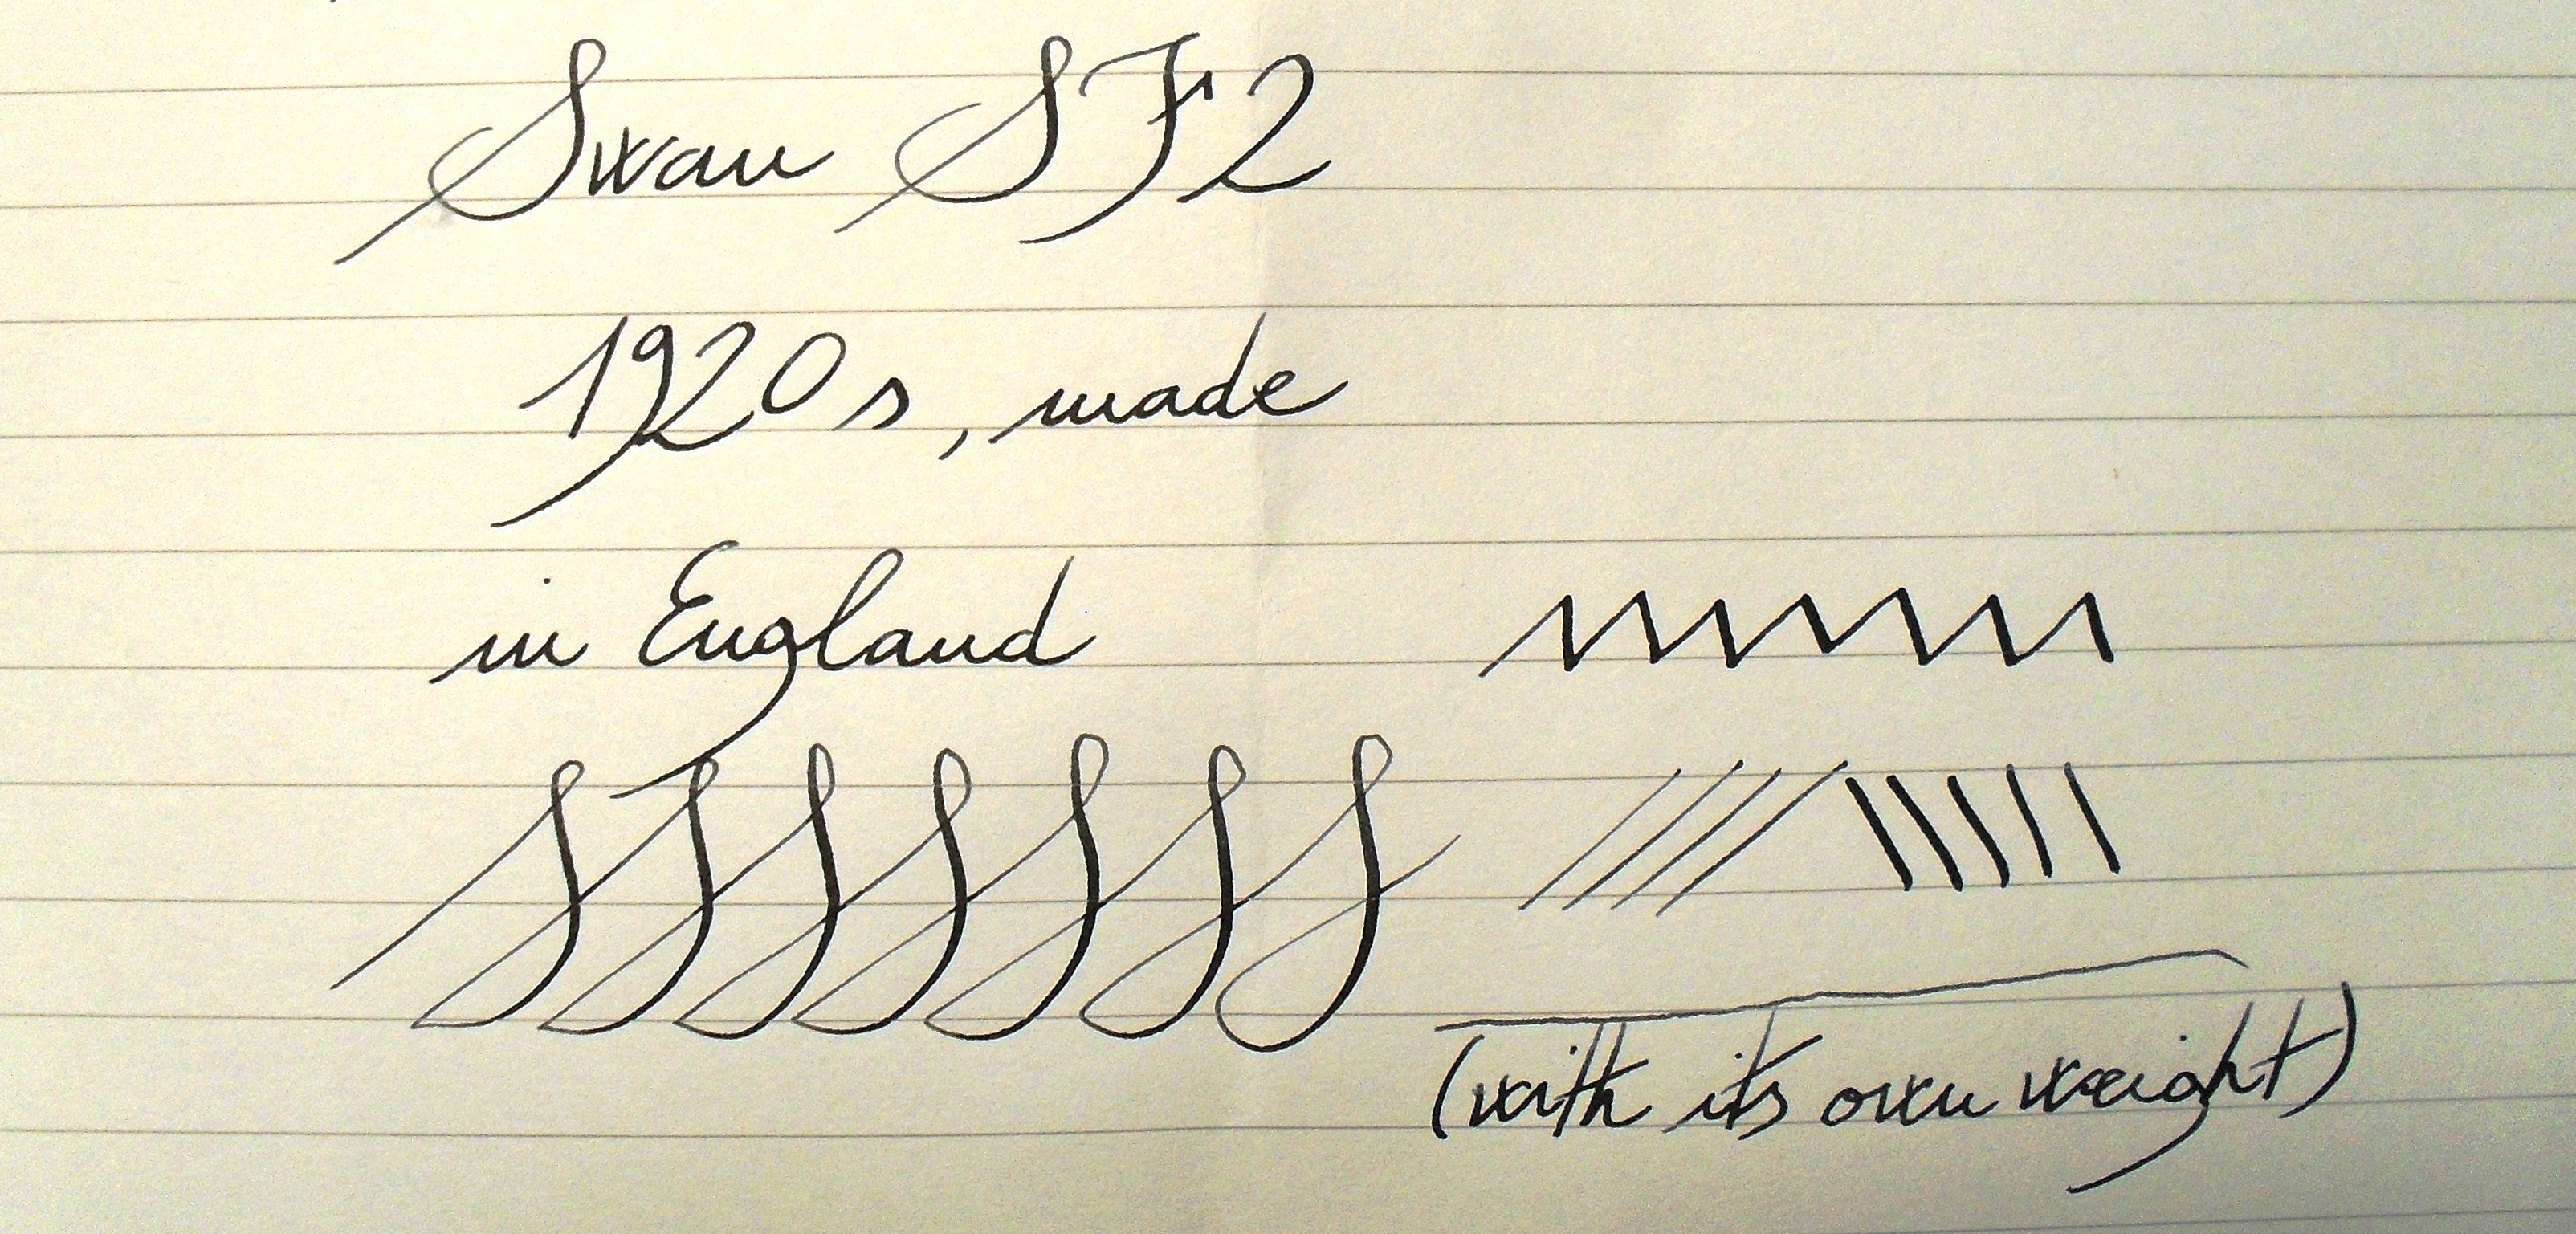 Swan SF2
1920s, made
in England
(with its own weight)